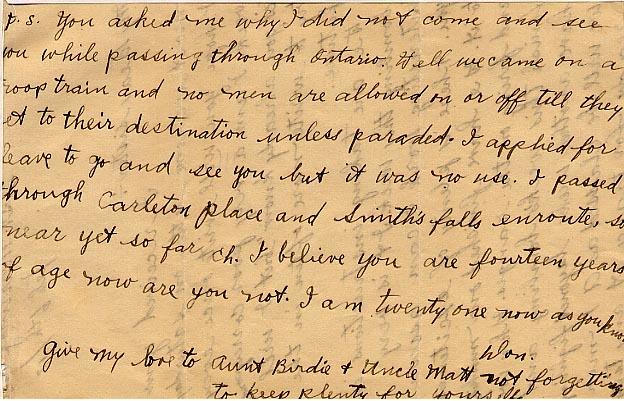 p. s. You asked me why I did not come and see
you while passing through Ontario. Well we came on a
troop train and no men are allowed on or off till they
et to their destination unless paraded. I applied for
leave to go and see you but it was no use. I passed
through Carleton place and Smith's falls enroute, so
near yet so far eh. I believe you are fourteen years
of age now are you not. I am twenty one now as you know
Don.
Give my love to Aunt Birdie + Uncle Matt not forgetting
to keep plenty for yourself